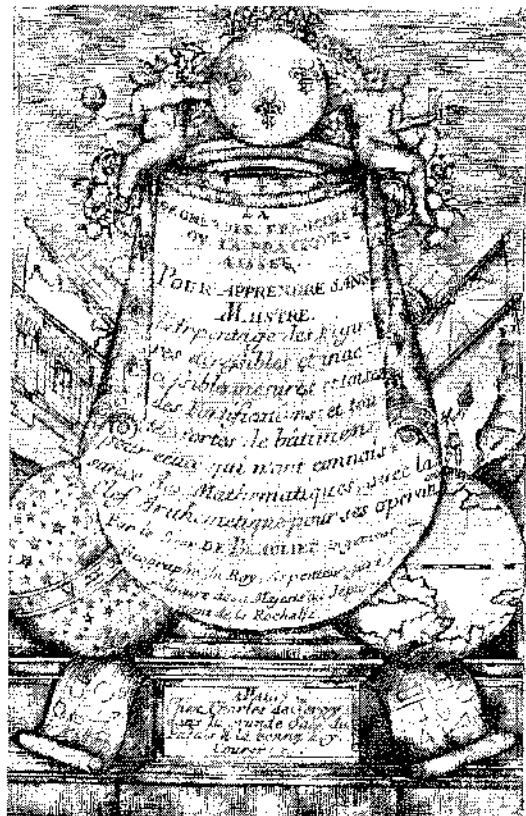 LA
OU LA PRACTIQUE
AISÉE
POUR APPRENDRE SANS
MAISTRE
L'Arpentage des Figu-
res accessibles et inac-
cessibles mesurer et toiser
des fortifications et tou-
tes sortes de bâtimens
pour ceux qui n'ont connois-
sance des Mathematiques, avec la
clef Arithmetique pour ses
Par le Sieur DE BEAULIEU Ingenieur
Geographe du Roy, Arpenteur
de sa Majesté au
de la Rochelle
A PARIS
Chez Charles de Sercy
dans la grande Salle du
Palais à la bonne Foy
Couronnée